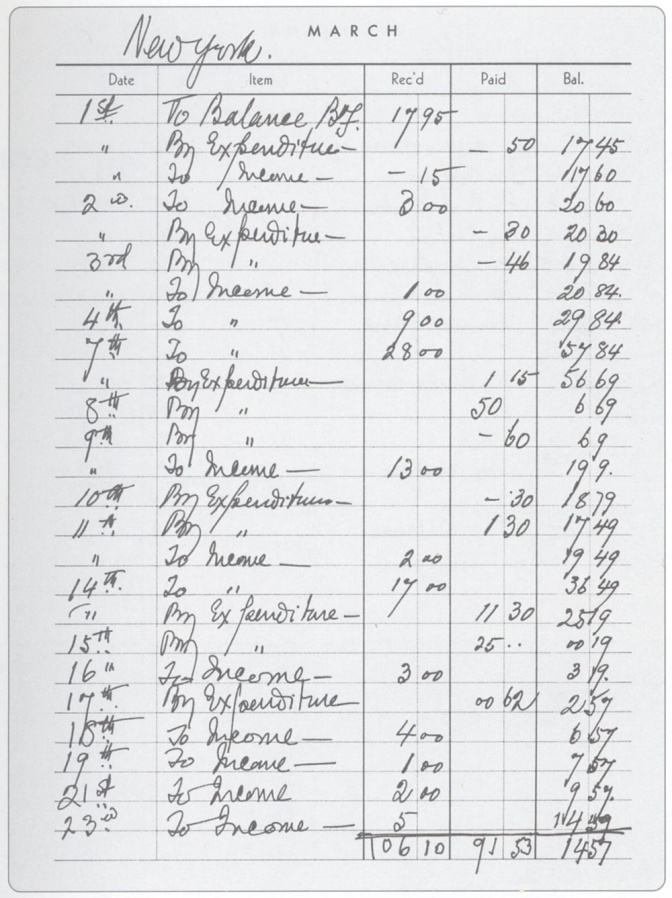 MARCH
New York.
Date Item Rec'd Paid Bal.
1st To Balance B/f. 17 95
" By Expenditure — – 50 17 45
" To Income — – 15 17 60
2nd. To Income — 3 00 20 60
" By Expenditure — – 30 20 30
3rd By " – 46 19 84
" To Income — 1 00 20 84.
4th To " 9 00 29 84.
7th To " 28 00 57 84
" By Expenditure — 1 15 56 69
8th By " 50 6 69
9th By " – 60 6 9
" To Income — 13 00 19 9.
10th By Expenditure — – 30 18 79
11th By " 1 30 17 49
" To Income — 2 00 19 49
14th. To " 17 00 36 49
" By Expenditure — 11 30 25 19
15th By " 25 .. 00 19
16 " To Income — 3 00 3 19.
17th By Expenditure 00 62 2 57
18th To Income — 4 00 6 57
19th To Income — 1 00 7 57
21st To Income 2 00 9 57.
23rd To Income — 5 14
106 10 91 53 14 57